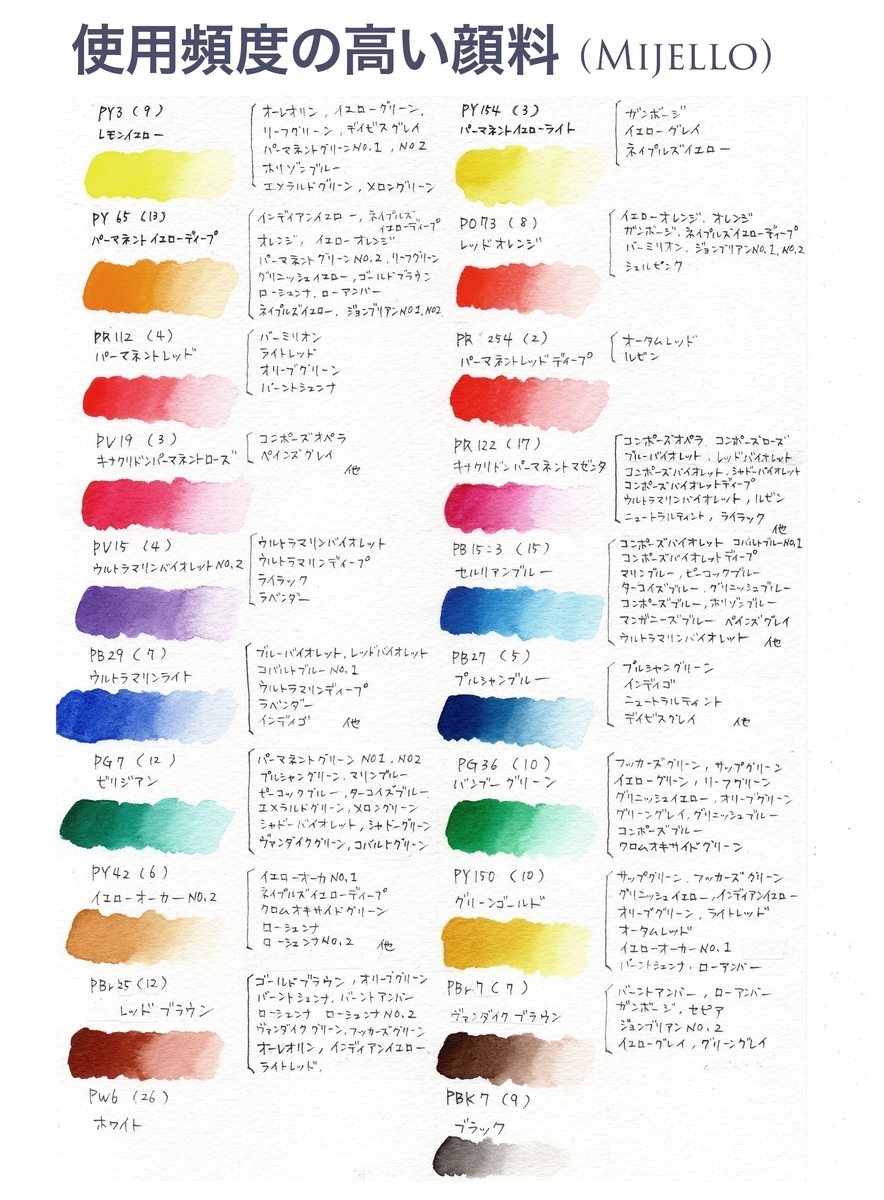 使用頻度の高い顔料 (MIJELLO)
PY3 (9)
レモンイエロー
オーレオリン, イエローグリーン,
リーフグリーン, デイビスグレイ
パーマネントグリーンNO.1, NO2
ホリゾンブルー
エメラルドグリーン, メロングリーン
PY154 (3)
パーマネントイエローライト
ガンボージ
イエローグレイ
ネイプルズイエロー
PY65 (13)
パーマネントイエローディープ
インディアンイエロー, ネイプルズ
イエローディープ
オレンジ, イエローオレンジ
パーマネントグリーンNO.2, リーフグリーン
グリニッシュイエロー, ゴールドブラウン
ローシェンナ, ローアンバー
ネイプルズイエロー, ジョンブリアンNO1, NO2
PO73 (8)
レッドオレンジ
イエローオレンジ, オレンジ
ガンボージ, ネイプルズイエローディープ
バーミリオン, ジョンブリアンNO.1, NO.2
シェルピンク
PR112 (4)
パーマネントレッド
バーミリオン
ライトレッド
オリーブグリーン
バーントシェンナ
PR254 (2)
パーマネントレッドディープ
オータムレッド
ルビン
PV19 (3)
キナクリドンパーマネントローズ
コンポーズオペラ
ペインズグレイ
他
PR122 (17)
キナクリドンパーマネントマゼンタ
コンポーズオペラ, コンポーズローズ
ブルーバイオレット, レッドバイオレット
コンポーズバイオレット, シャドーバイオレット
コンポーズバイオレットディープ
ウルトラマリンバイオレット, ルゼン
ニュートラルティント, ライラック
他
PV15 (4)
ウルトラマリンバイオレットNO.2
ウルトラマリンバイオレット
ウルトラマリンディープ
ライラック
ラベンダー
PB15:3 (15)
セルリアンブルー
コンポーズバイオレット コバルトブルーNO.1
コンポーズバイオレットディープ
マリンブルー, ピーコックブルー
ターコイズブルー, グリニッシュブルー
コンポーズブルー, ホリゾンブルー
マンガニーズブルー ペインズグレイ
ウルトラマリンバイオレット 他
PB29 (7)
ウルトラマリンライト
ブルーバイオレット, レッドバイオレット
コバルトブルーNO.1
ウルトラマリンディープ
ラベンダー
インディゴ 他
PB27 (5)
プルシャンブルー
プルシャングリーン
インディゴ
ニュートラルティント
デイビスグレイ 他
PG7 (12)
ビリジアン
パーマネントグリーン NO1, NO2
プルシャングリーン, マリンブルー
ピーコックブルー, ターコイズブルー
エメラルドグリーン, メロングリーン
シャドーバイオレット, シャドーグリーン
ヴァンダイクグリーン, コバルトグリーン
PG36 (10)
バンブーグリーン
フッカーズグリーン, サップグリーン
イエローグリーン, リーフグリーン
グリニッシュイエロー, オリーブグリーン
グリーングレイ, グリニッシュブルー
コンポーズブルー
クロムオキサイドグリーン
PY42 (6)
イエローオーカーNO.2
イエローオーカNO.1
ネイプルズイエローディープ
クロムオキサイドグリーン
ローシェンナ
ローシェンナNO.2 他
PY150 (10)
グリーンゴールド
サップグリーン, フッカーズグリーン
グリニッシュイエロー, インディアンイエロー
オリーブグリーン, ライトレッド
オータムレッド
イエローオーカーNO.1
バーントシェンナ, ローアンバー
PBr25 (12)
レッドブラウン
ゴールドブラウン, オリーブグリーン
バーントシェンナ, バーントアンバー
ローシェンナ ローシェンナNO.2
ヴァンダイクグリーン, フッカーズグリーン
オーレオリン, インディアンイエロー,
ライトレッド,
PBr7 (7)
ヴァンダイクブラウン
バーントアンバー, ローアンバー
ガンボージ, セピア
ジョンブリアンNO.2
イエローグレイ, グリーングレイ
PW6 (26)
ホワイト
PBK7 (9)
ブラック